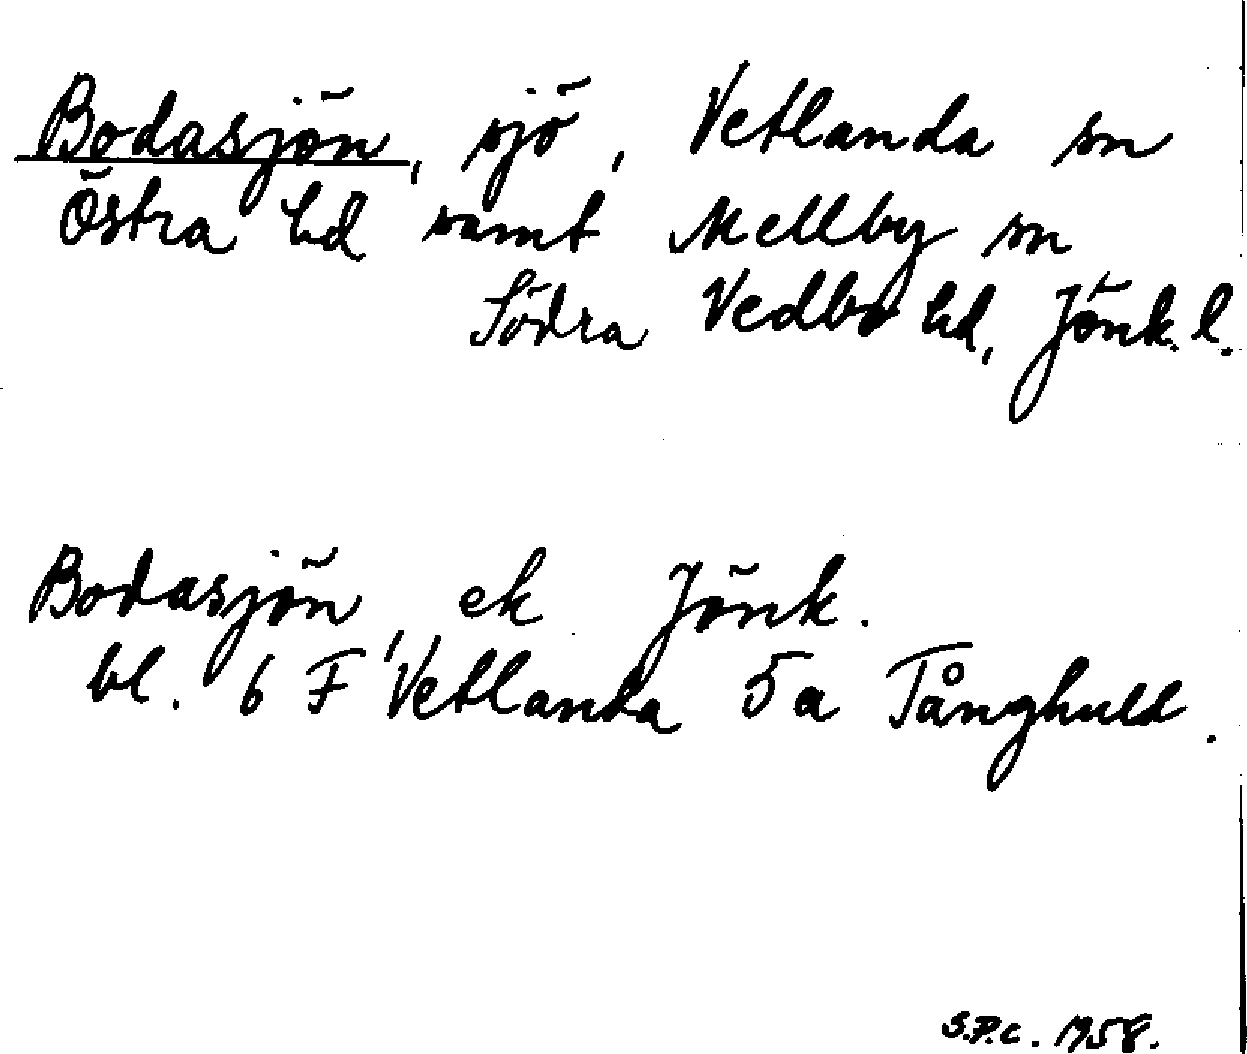 Bodasjön, sjö, Vetlanda sn
Östra hd samt Mellby sn
Södra Vedbo hd, Jönk. l.
Bodasjön, ek Jönk.
bl. 6 F Vetlanda 5a Tånghult.
S.P.C. 1958.